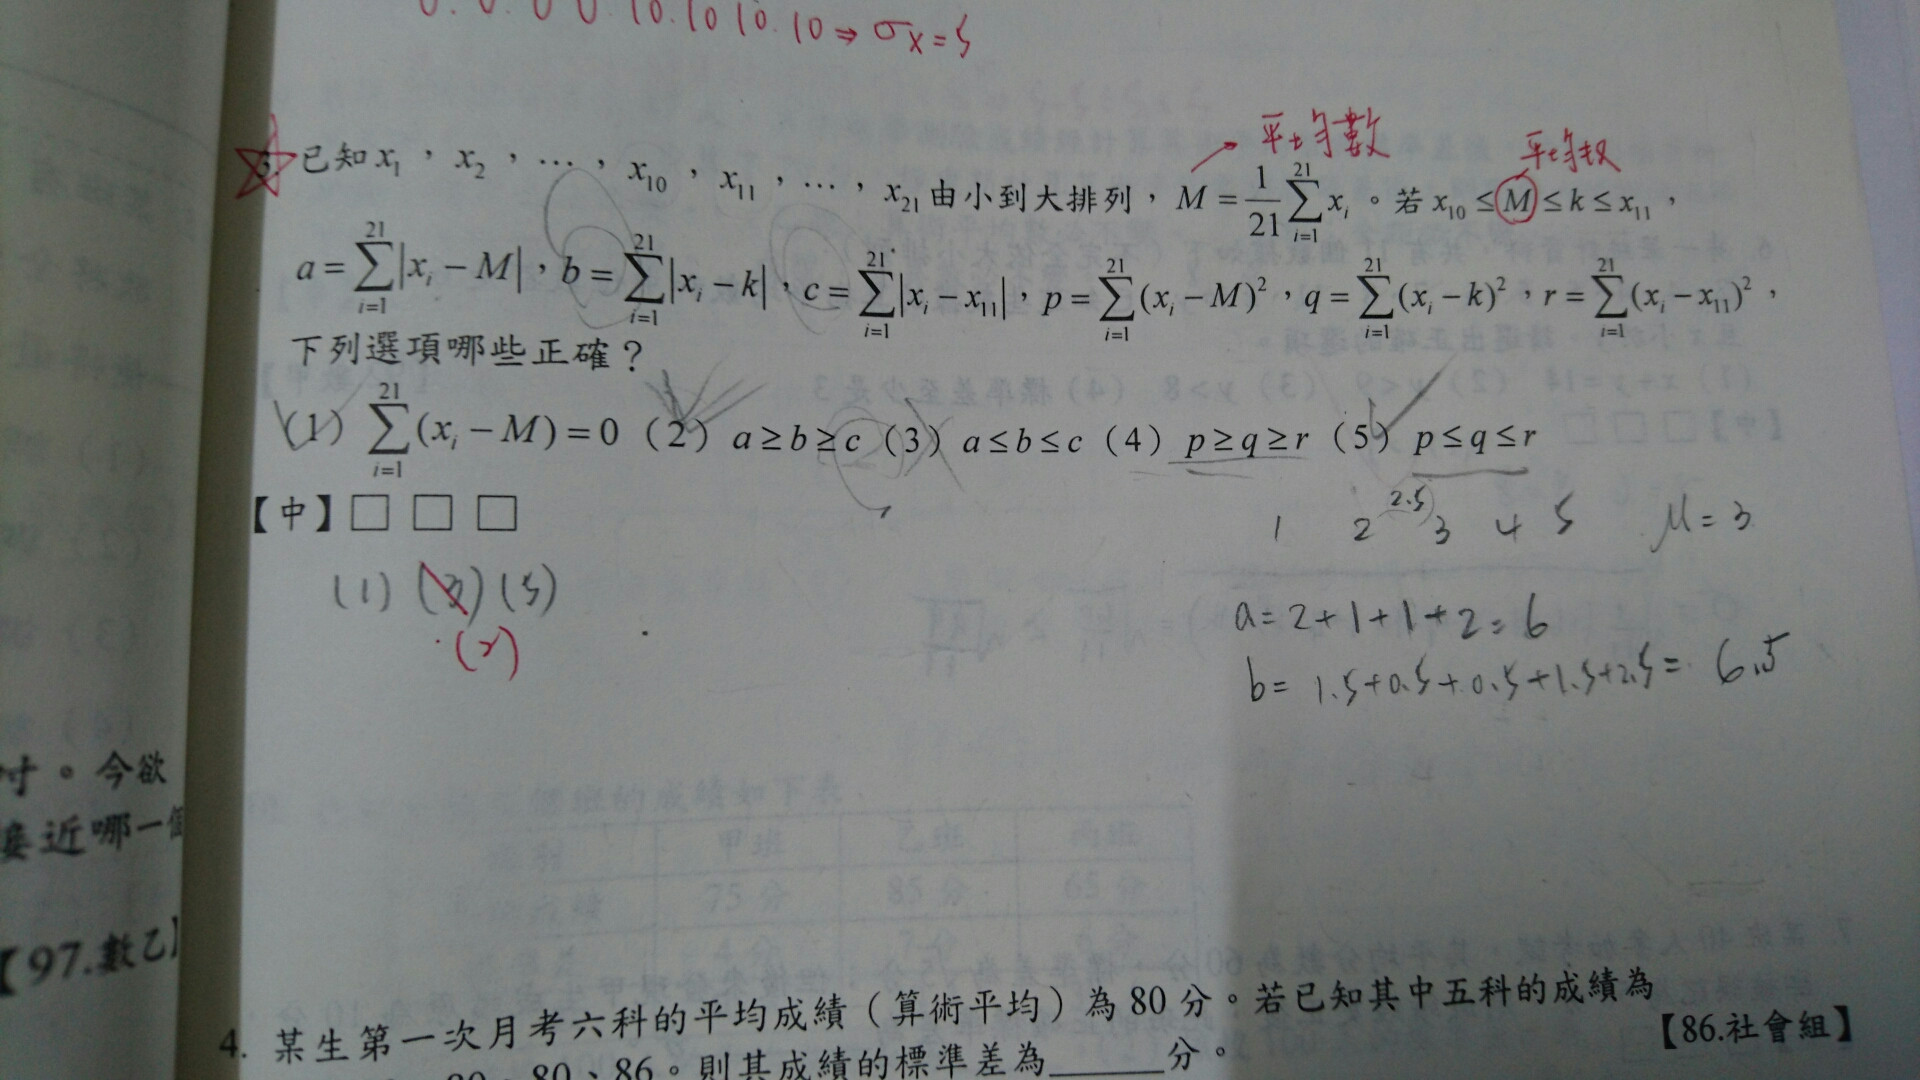 0. 0. 0 0 10. 10 10. 10 ⇒ σx = 5
平均數
平均數
3. 已知 x₁，x₂，…，x₁₀，x₁₁，…，x₂₁ 由小到大排列，M = 1/21 ∑_{i=1}^{21} xᵢ。若 x₁₀ ≤ M ≤ k ≤ x₁₁，
a = ∑_{i=1}^{21} |xᵢ − M|，b = ∑_{i=1}^{21} |xᵢ − k|，c = ∑_{i=1}^{21} |xᵢ − x₁₁|，p = ∑_{i=1}^{21} (xᵢ − M)²，q = ∑_{i=1}^{21} (xᵢ − k)²，r = ∑_{i=1}^{21} (xᵢ − x₁₁)²，
下列選項哪些正確？
(1) ∑_{i=1}^{21} (xᵢ − M) = 0 (2) a ≥ b ≥ c (3) a ≤ b ≤ c (4) p ≥ q ≥ r (5) p ≤ q ≤ r
【中】□ □ □
2.5
1 2 3 4 5 μ = 3
(1) (3) (5)
(2)
a = 2+1+1+2 = 6
b = 1.5+0.5+0.5+1.5+2.5 = 6.5
寸。今欲
接近哪一個
【97.數乙】
4. 某生第一次月考六科的平均成績（算術平均）為 80 分。若已知其中五科的成績為
80、86。則其成績的標準差為______分。
【86.社會組】